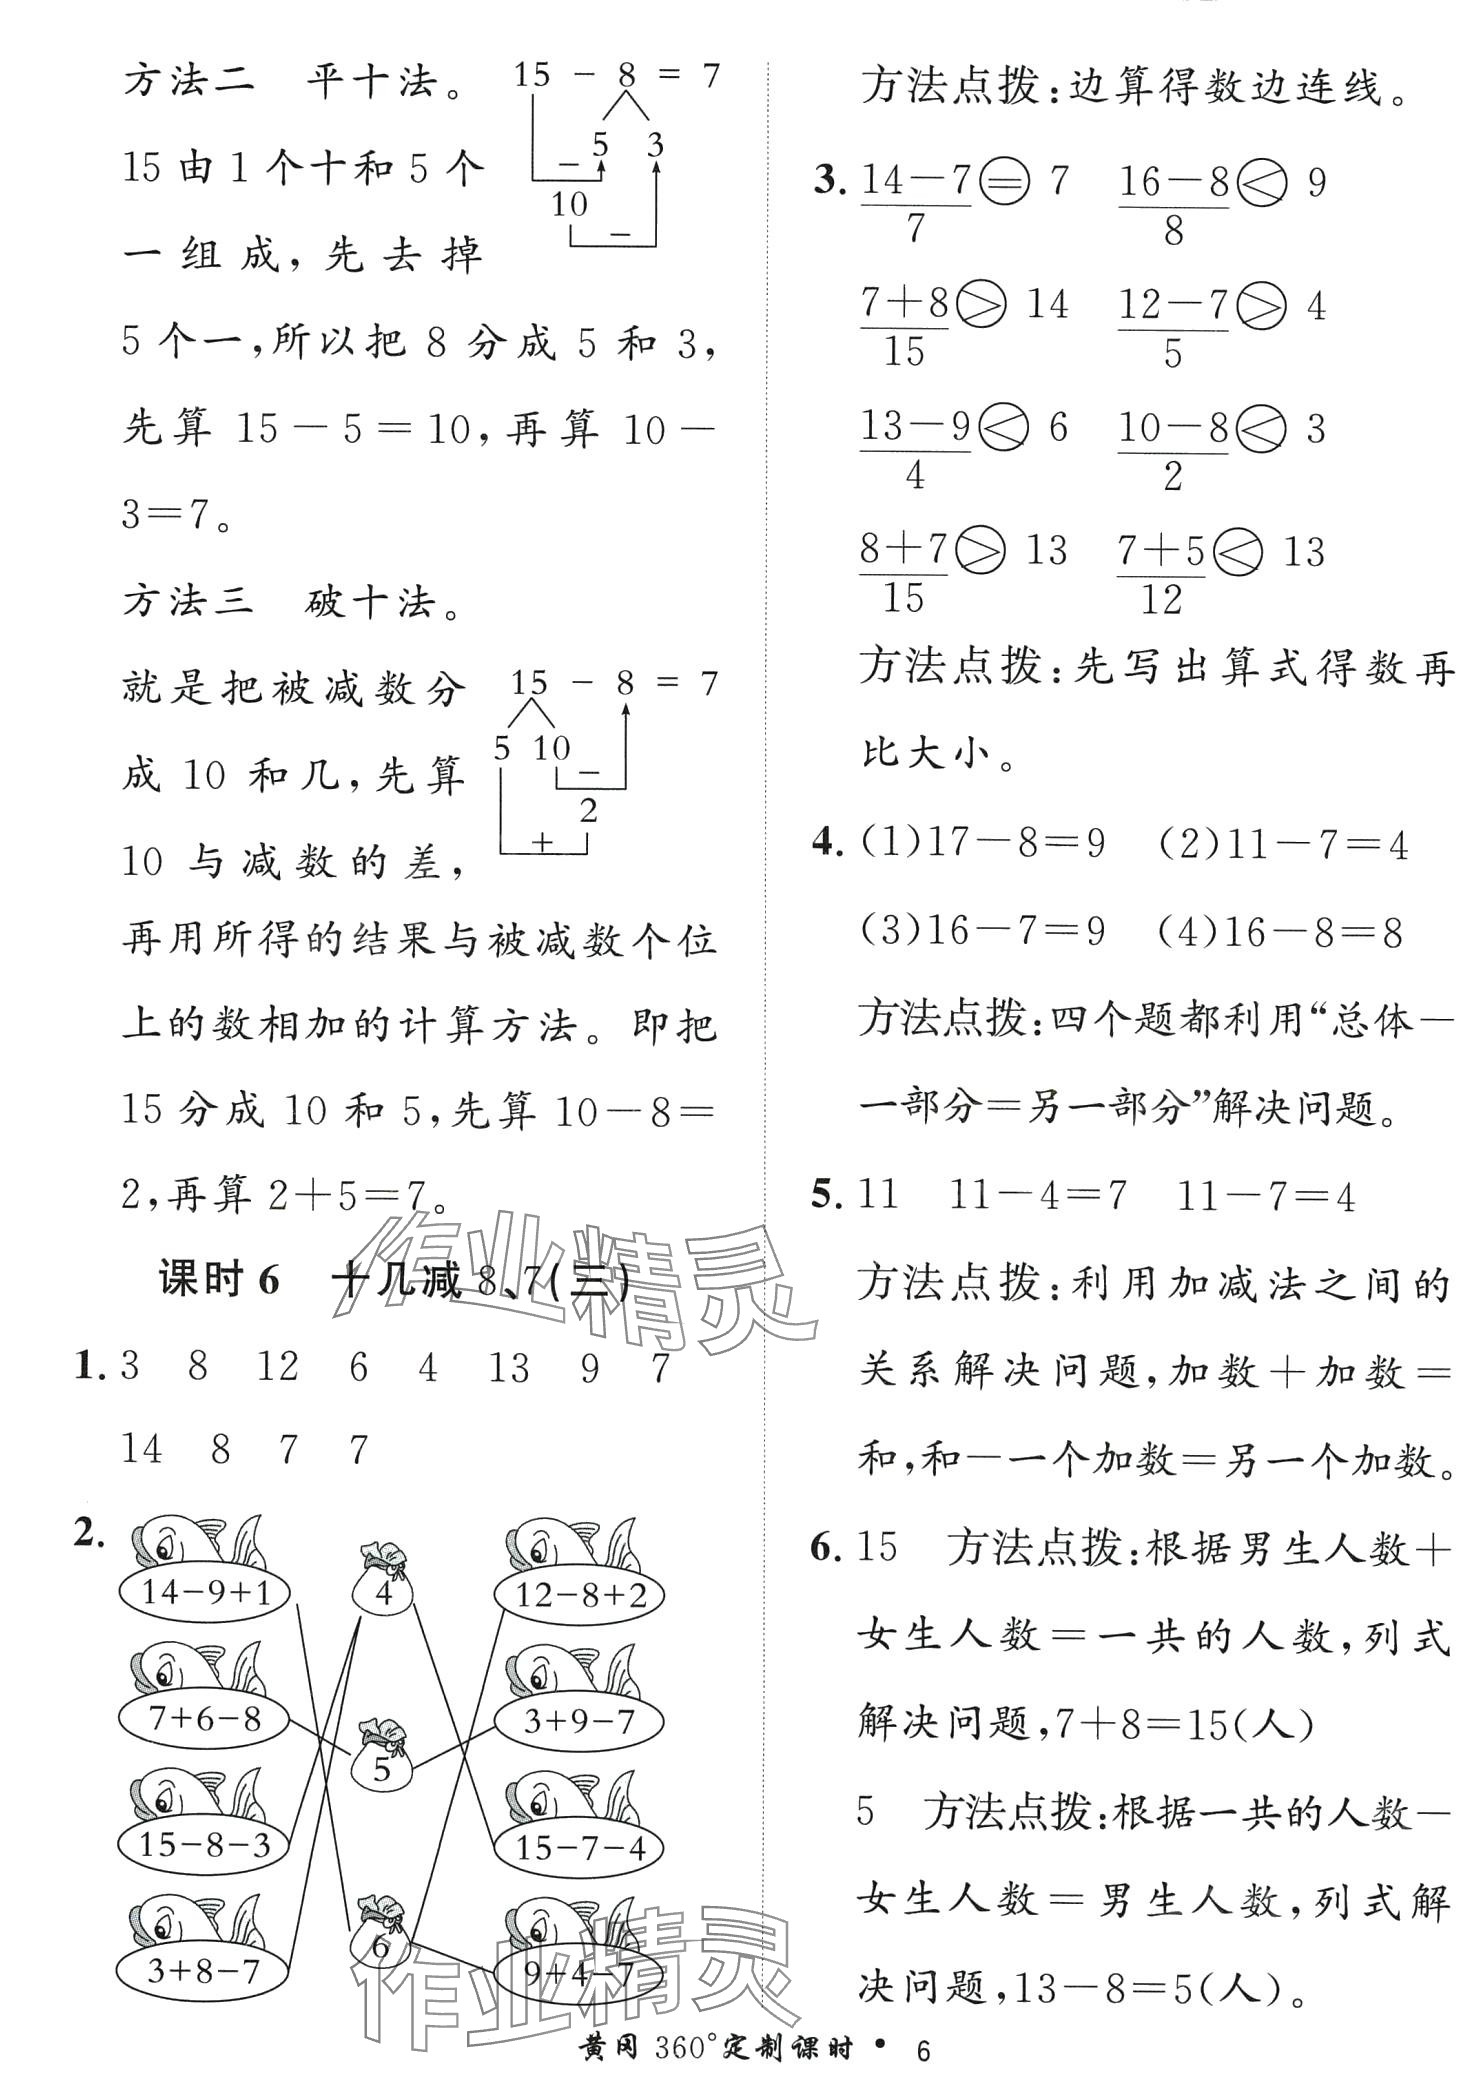 方法二 平十法。
15 - 8 = 7
5 3
-
10
-
15由1个十和5个
一组成,先去掉
5个一,所以把8分成5和3,
先算15-5=10,再算10-
3=7。
方法三 破十法。
就是把被减数分
15 - 8 = 7
5 10
-
2
+
成10和几,先算
10与减数的差,
再用所得的结果与被减数个位
上的数相加的计算方法。即把
15分成10和5,先算10-8=
2,再算2+5=7。
课时6 十几减8、7(三)
1. 3 8 12 6 4 13 9 7
14 8 7 7
2.
14-9+1 4 12-8+2
7+6-8 5 3+9-7
15-8-3 15-7-4
3+8-7 6 9+4-7
方法点拨:边算得数边连线。
3. 14-7=7 16-8<9
7 8
7+8>14 12-7>4
15 5
13-9<6 10-8<3
4 2
8+7>13 7+5<13
15 12
方法点拨:先写出算式得数再
比大小。
4. (1)17-8=9 (2)11-7=4
(3)16-7=9 (4)16-8=8
方法点拨:四个题都利用“总体-
一部分=另一部分”解决问题。
5. 11 11-4=7 11-7=4
方法点拨:利用加减法之间的
关系解决问题,加数+加数=
和,和-一个加数=另一个加数。
6. 15 方法点拨:根据男生人数+
女生人数=一共的人数,列式
解决问题,7+8=15(人)
5 方法点拨:根据一共的人数-
女生人数=男生人数,列式解
决问题,13-8=5(人)。
作业精灵
作业精灵
黄冈360°定制课时 • 6